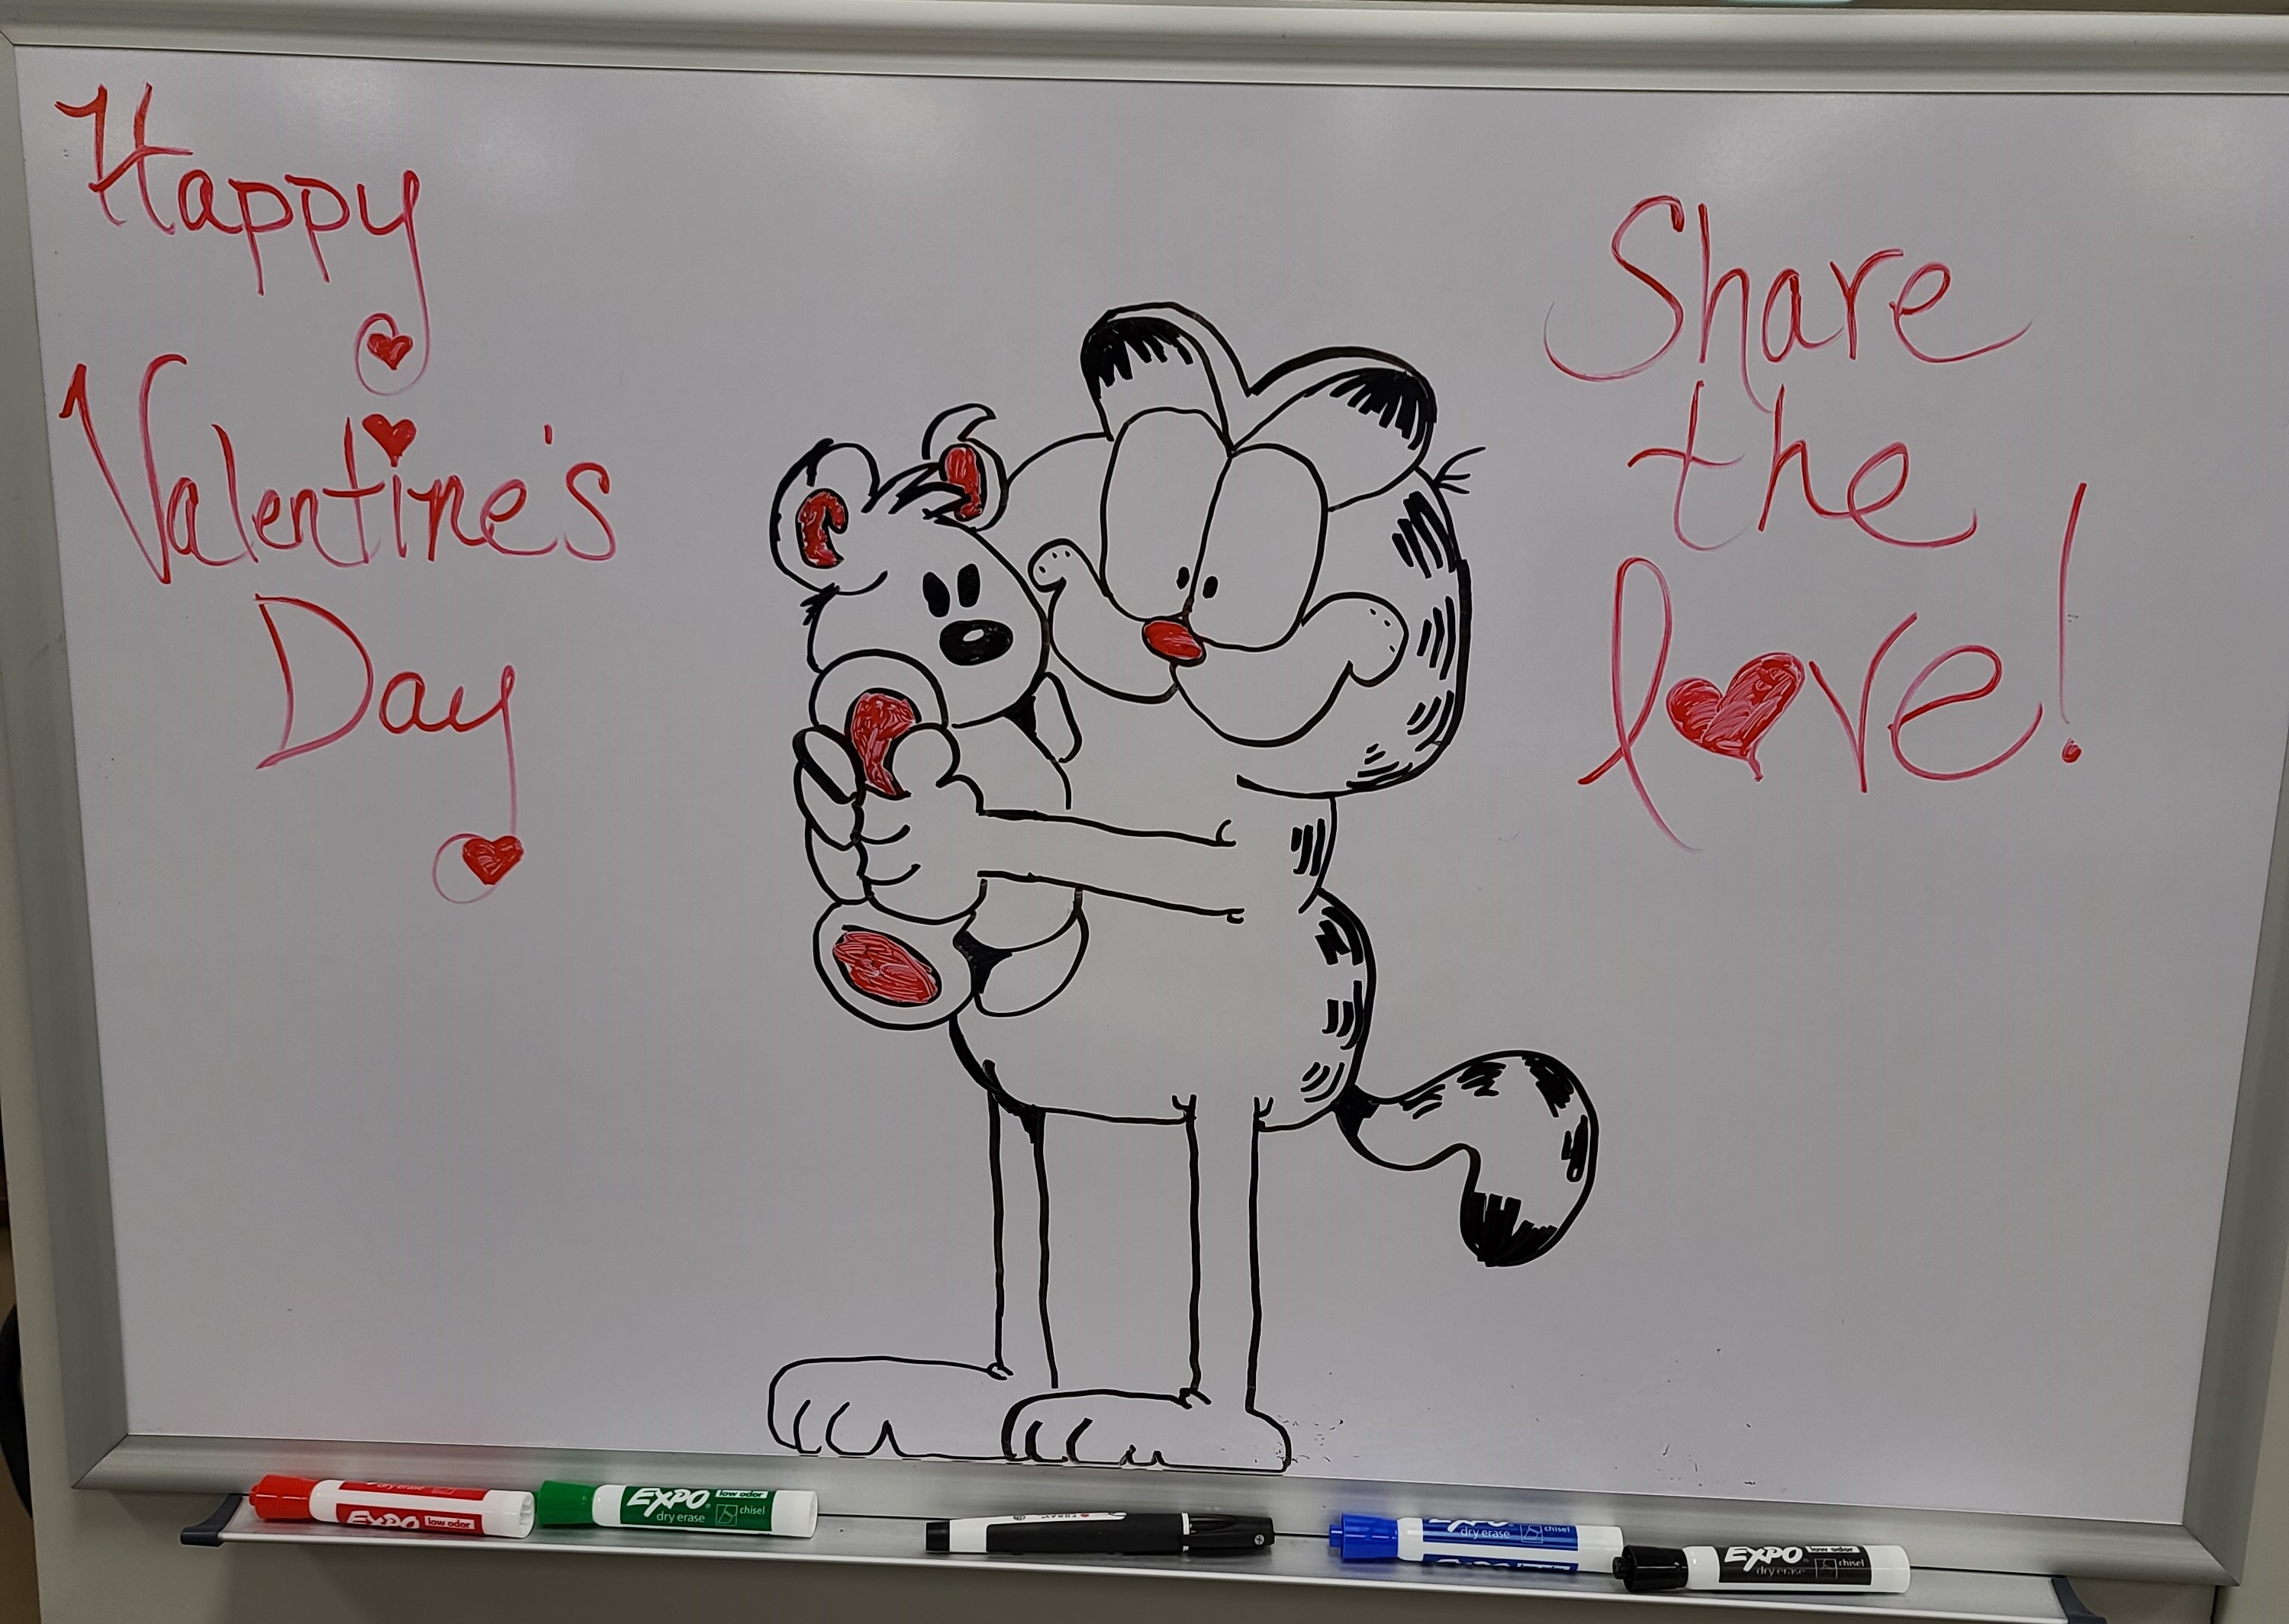 Happy
Valentine's
Day
Share
the
love!
EXPO low odor
EXPO low odor
dry erase chisel
dry erase chisel
EXPO chisel
dry erase